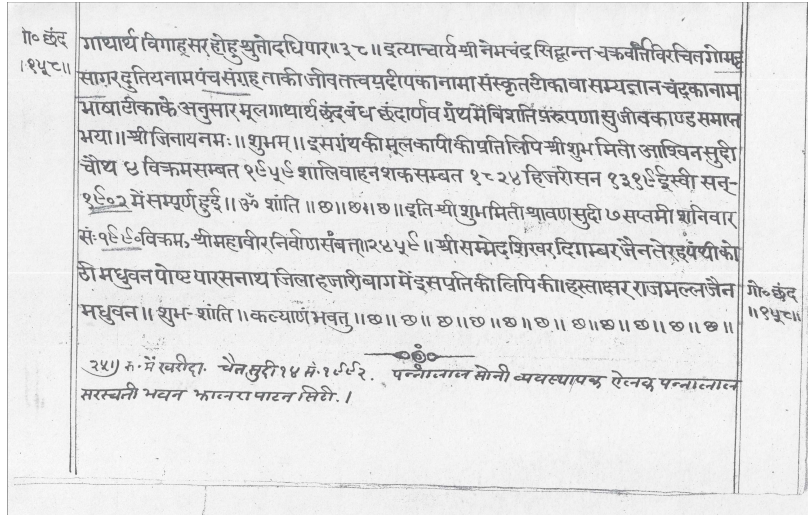 गो० छंद
।१५८॥
गाथार्थ विगाह्सर होहु श्रुतोदधिपार॥३८॥ इत्याचार्य श्री नेमचंद्र सिद्धान्त चक्रवर्त्ति विरचित गोमट्ट
सागर दुतिय नाम पंच संग्रह ताकी जीवतत्त्व प्रदीपका नामा संस्कृत टीका वा सम्यज्ञान चंद्रका नाम
भाषा टीका के अनुसार मूल गाथार्थ छंद बंध छंदार्णव ग्रंथ में विंशति प्ररुपणा सु जीव काण्ड समाप्त
भया॥ श्री जिनाय नमः॥ शुभम्॥ इस ग्रंथ की मूल कापी की प्रति लिपि श्री शुभ मिती आश्विन सुदी
चौथ ४ विक्रम सम्बत १९५९ शालिवाहन शक सम्बत १८२४ हिजरी सन १३१९ ईस्वी सन्-
१९०२ में सम्पूर्ण हुई॥ ॐ शांति॥ छ॥ छ॥ छ॥ इति श्री शुभ मिती श्रावण सुदी ७ सप्तमी शनिवार
सं: १९९० विक्रम, श्री महावीर निर्वाण संबत्॥२४५९॥ श्री सम्मेद शिखर दिगम्बर जैन तेरह पंथी को
ठी मधुवन पोष्ट पारसनाथ जिला हजारी बाग में इस प्रति की लिपि की॥ हस्ताक्षर राजमल्ल जैन
मधुवन॥ शुभ- शांति॥ कल्याणं भवतु॥ छ॥ छ॥ छ॥ छ॥ छ॥ छ॥ छ॥ छ॥ छ॥ छ॥ छ॥
गो० छंद
॥१५८॥
२५) रु. में खरीदा. चैत सुदी १४ सं. १९९२. पन्नालाल सोनी व्यवस्थापक ऐलक पन्नालाल
सरस्वती भवन झालरापाटन सिटी.।